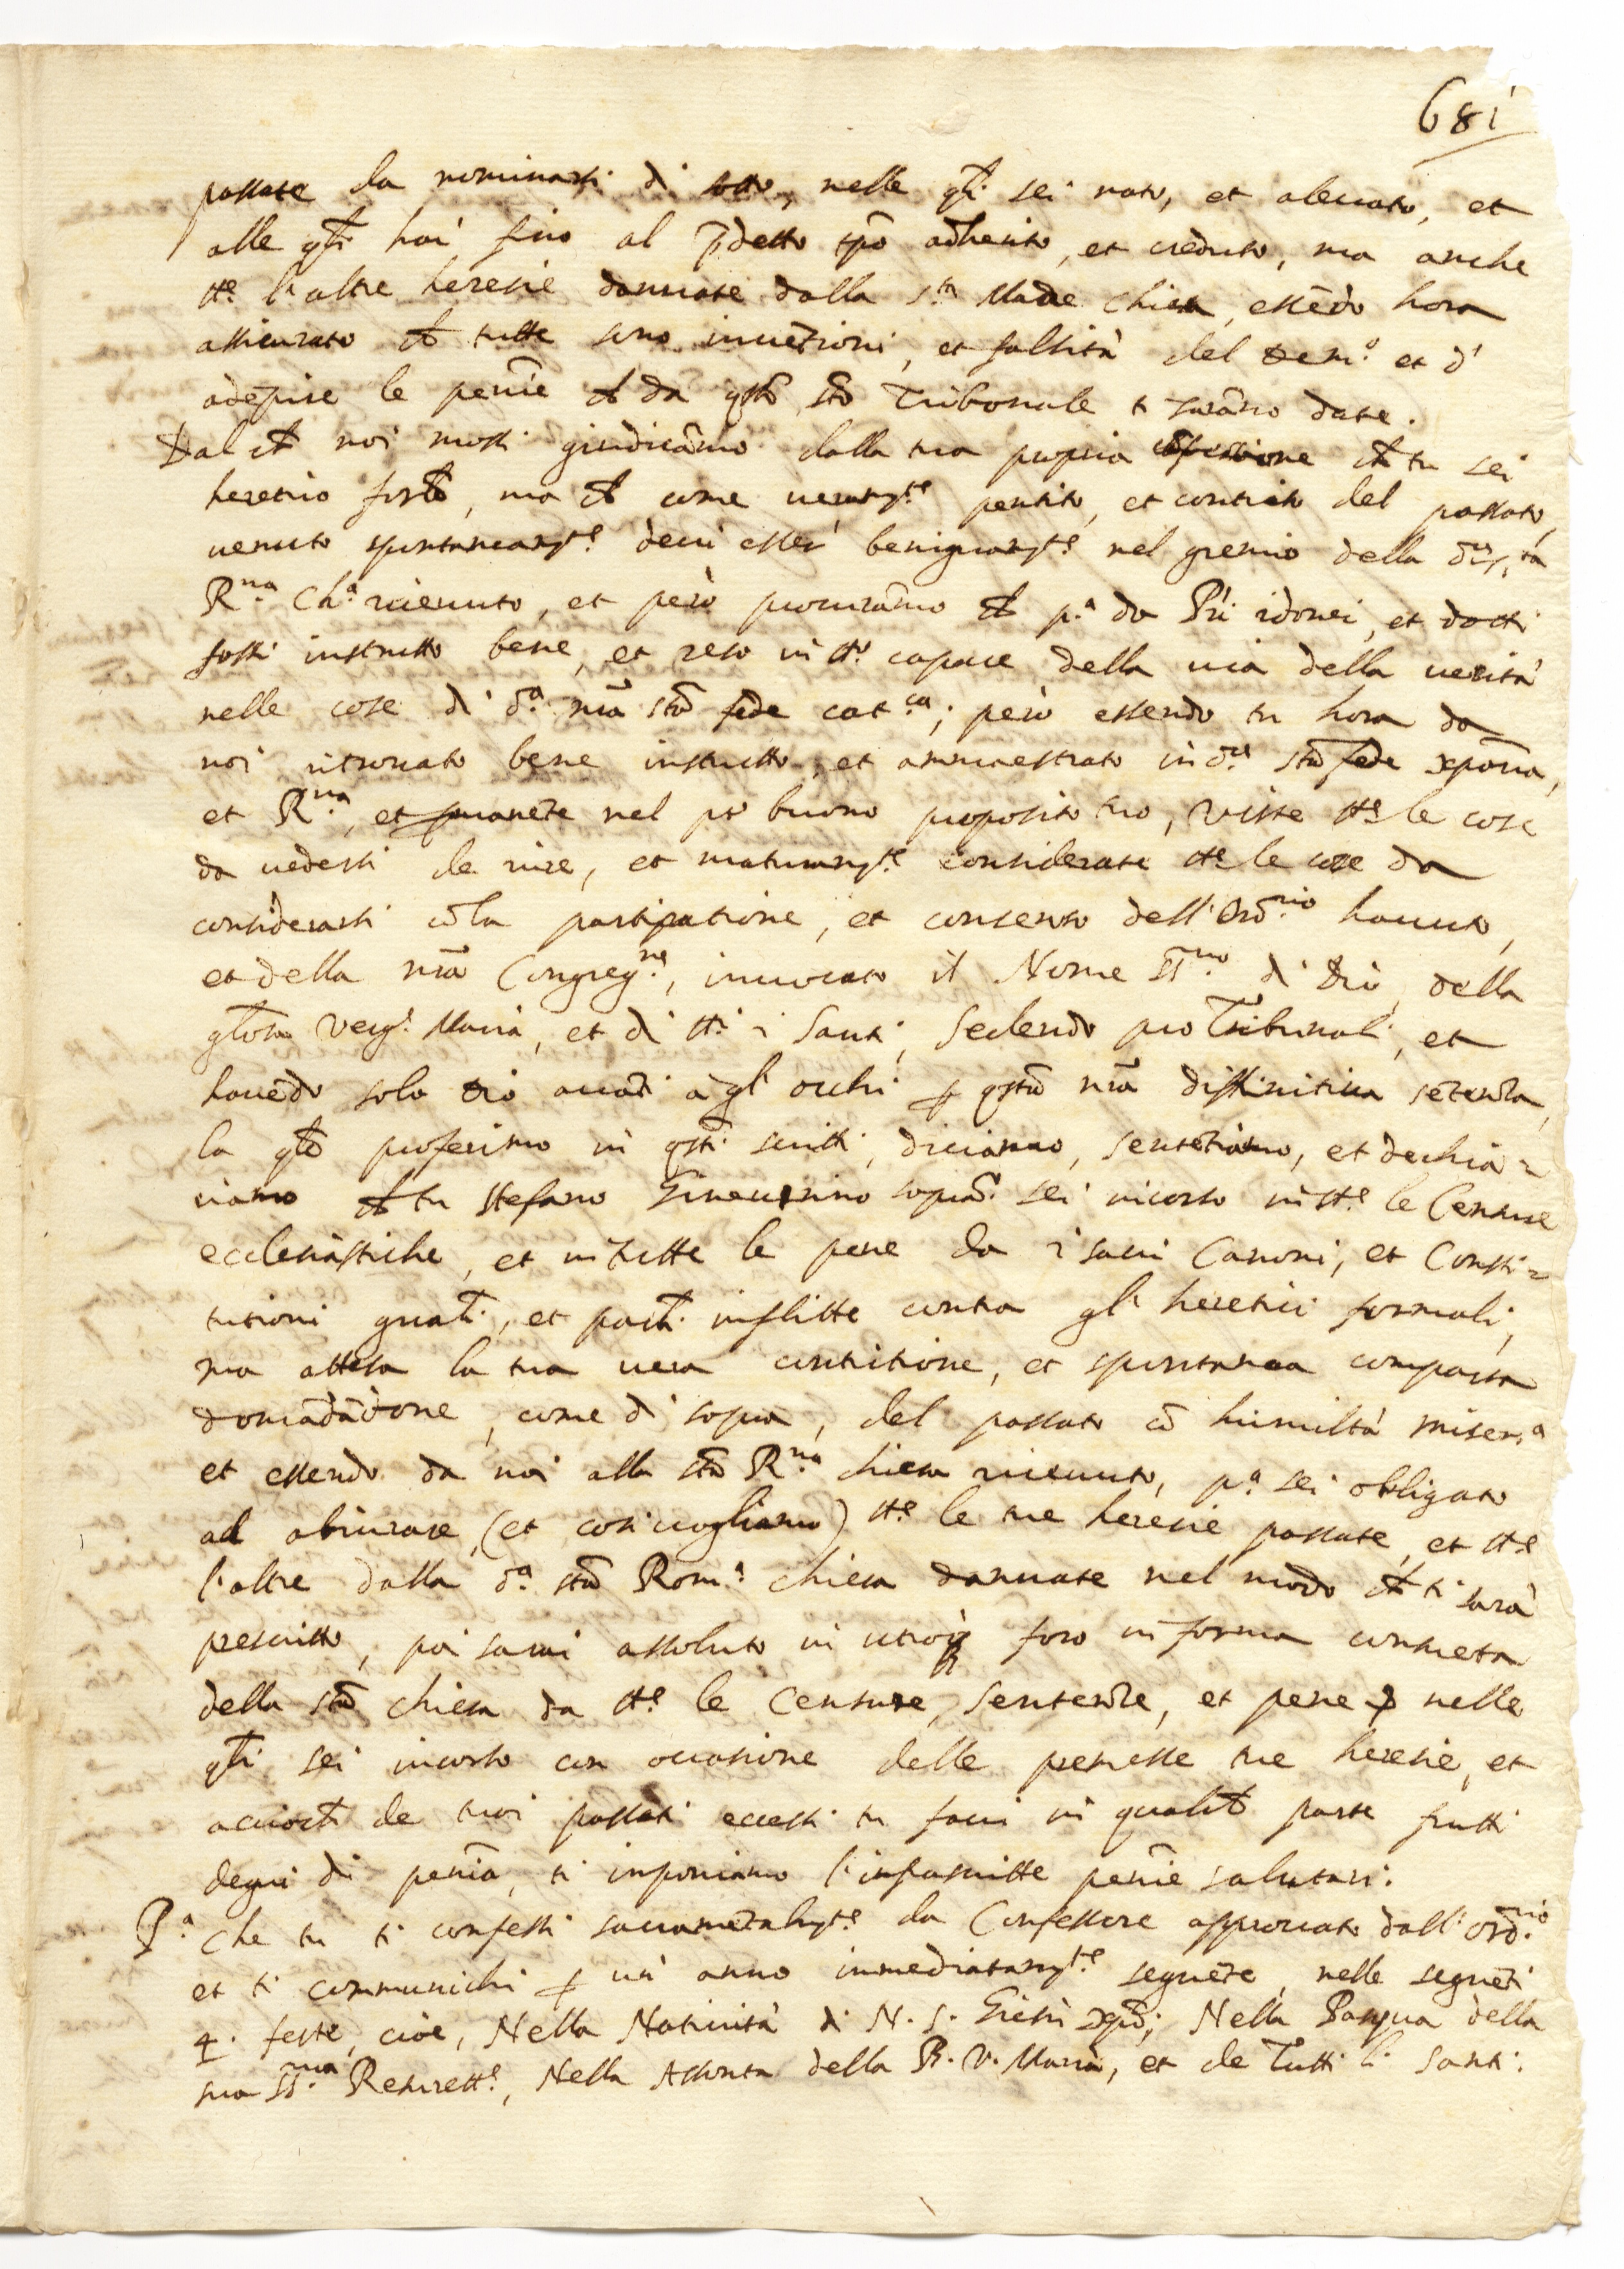 681
passate da nominarsi di sotto, nelle q̃li sei nato, et alevato, et
alle q̃li hai fino al p̃detto tp̃o adherito, et creduto, ma anche
tt.e l'altre heresie dannate dalla s.ta Madre Chiesa, essẽdo hora
assicurato ch̃ tutte sono invẽtioni, et falsità del Dem.o et d'
adẽpire le penĩe ch̃ da q̃sto s̃to Tribonale ti sarãno date.
Dal ch̃ noi mossi giudicãmo dalla tua propria cõfessione ch̃ tu sei
heretico form̃, ma ch̃ come veram.te pentito, et contrito del passato,
venuto spontaneam.te devi esser benignam.te nel gremio della s.ta
R.na Ch.a ricevuto, et però procurãmo ch̃ p.a da P̃ri idonei, et dotti
fossi instrutto bene, et reso in tt.o capace della via della verità
nelle cose di d.a nr̃a s̃ta fede cat.ca; però essendo tu hora da
noi ritrovato bene instrutto, et ammaestrato in d.a s̃ta fede xp̃ona,
et R.na, et nel buono proposito tuo, viste tt.e le cose
da vedersi de iure, et maturam.te considerate tt.e le cose da
considerarsi cõ la partipatione, et consenso dell'Ord.rio havuto,
et della nr̃a Congreg.ne, invocato il Nome SS.mo di Dio, della
gl̃osa Verg.e Maria, et di tt.i i Santi, Sedendo pro Tribunali, et
havẽdo solo Dio avãti à gl'occhi p q̃sta nr̃a diffinitiva sẽtenza,
la q̃le proferimo in q̃sti scritti, diciamo, sentẽtiamo, et dechia=
riamo ch̃ tu Stefano sopad.o sei incorso in tt.e le Censure
ecclesiastiche, et in tutte le pene da i sacri Canoni, et Consti=
tutioni gnãli, et part.i inflitte contra gl'heretici formali,
ma attesa la tua vera contritione, et spontanea comparsa
domãdãdone, come di sopra, del passato cõ humiltà miser.a
et essendo da noi alla s̃ta R.na chiesa ricevuto, p.a sei obligato
ad abiurare, (et cosi vogliamo) tt.e le tue heresie passate, et tt.e
l'altre dalla d.a s̃ta Rom.a chiesa dannate nel modo ch̃ ti sarà
prescritto, poi sarai assoluto in utroq̃ foro in forma consueta
della s̃ta chiesa da tt.e le Censure, Sentenze, et pene nelle
q̃li sei incorso con occasione delle premesse tue heresie, et
acciocch̃ de tuoi passati eccessi tu facci in qualch̃ parte frutti
degni di penĩa, ti imponiamo l'infrascritte penĩe salutari.
P.a Che tu ti confessi sacramẽtalm.te da Confessore approvato dall'Ord.rio
et ti communichi p un'anno immediatam.te seguẽte, nelle seguẽti
4. feste, cioè, Nella Natività di N. S. Giesù xp̃o; Nella Pasqua della
sua SS.ma Resurett.e, Nella Assonta della B. V. Maria, et de Tutti li Santi.